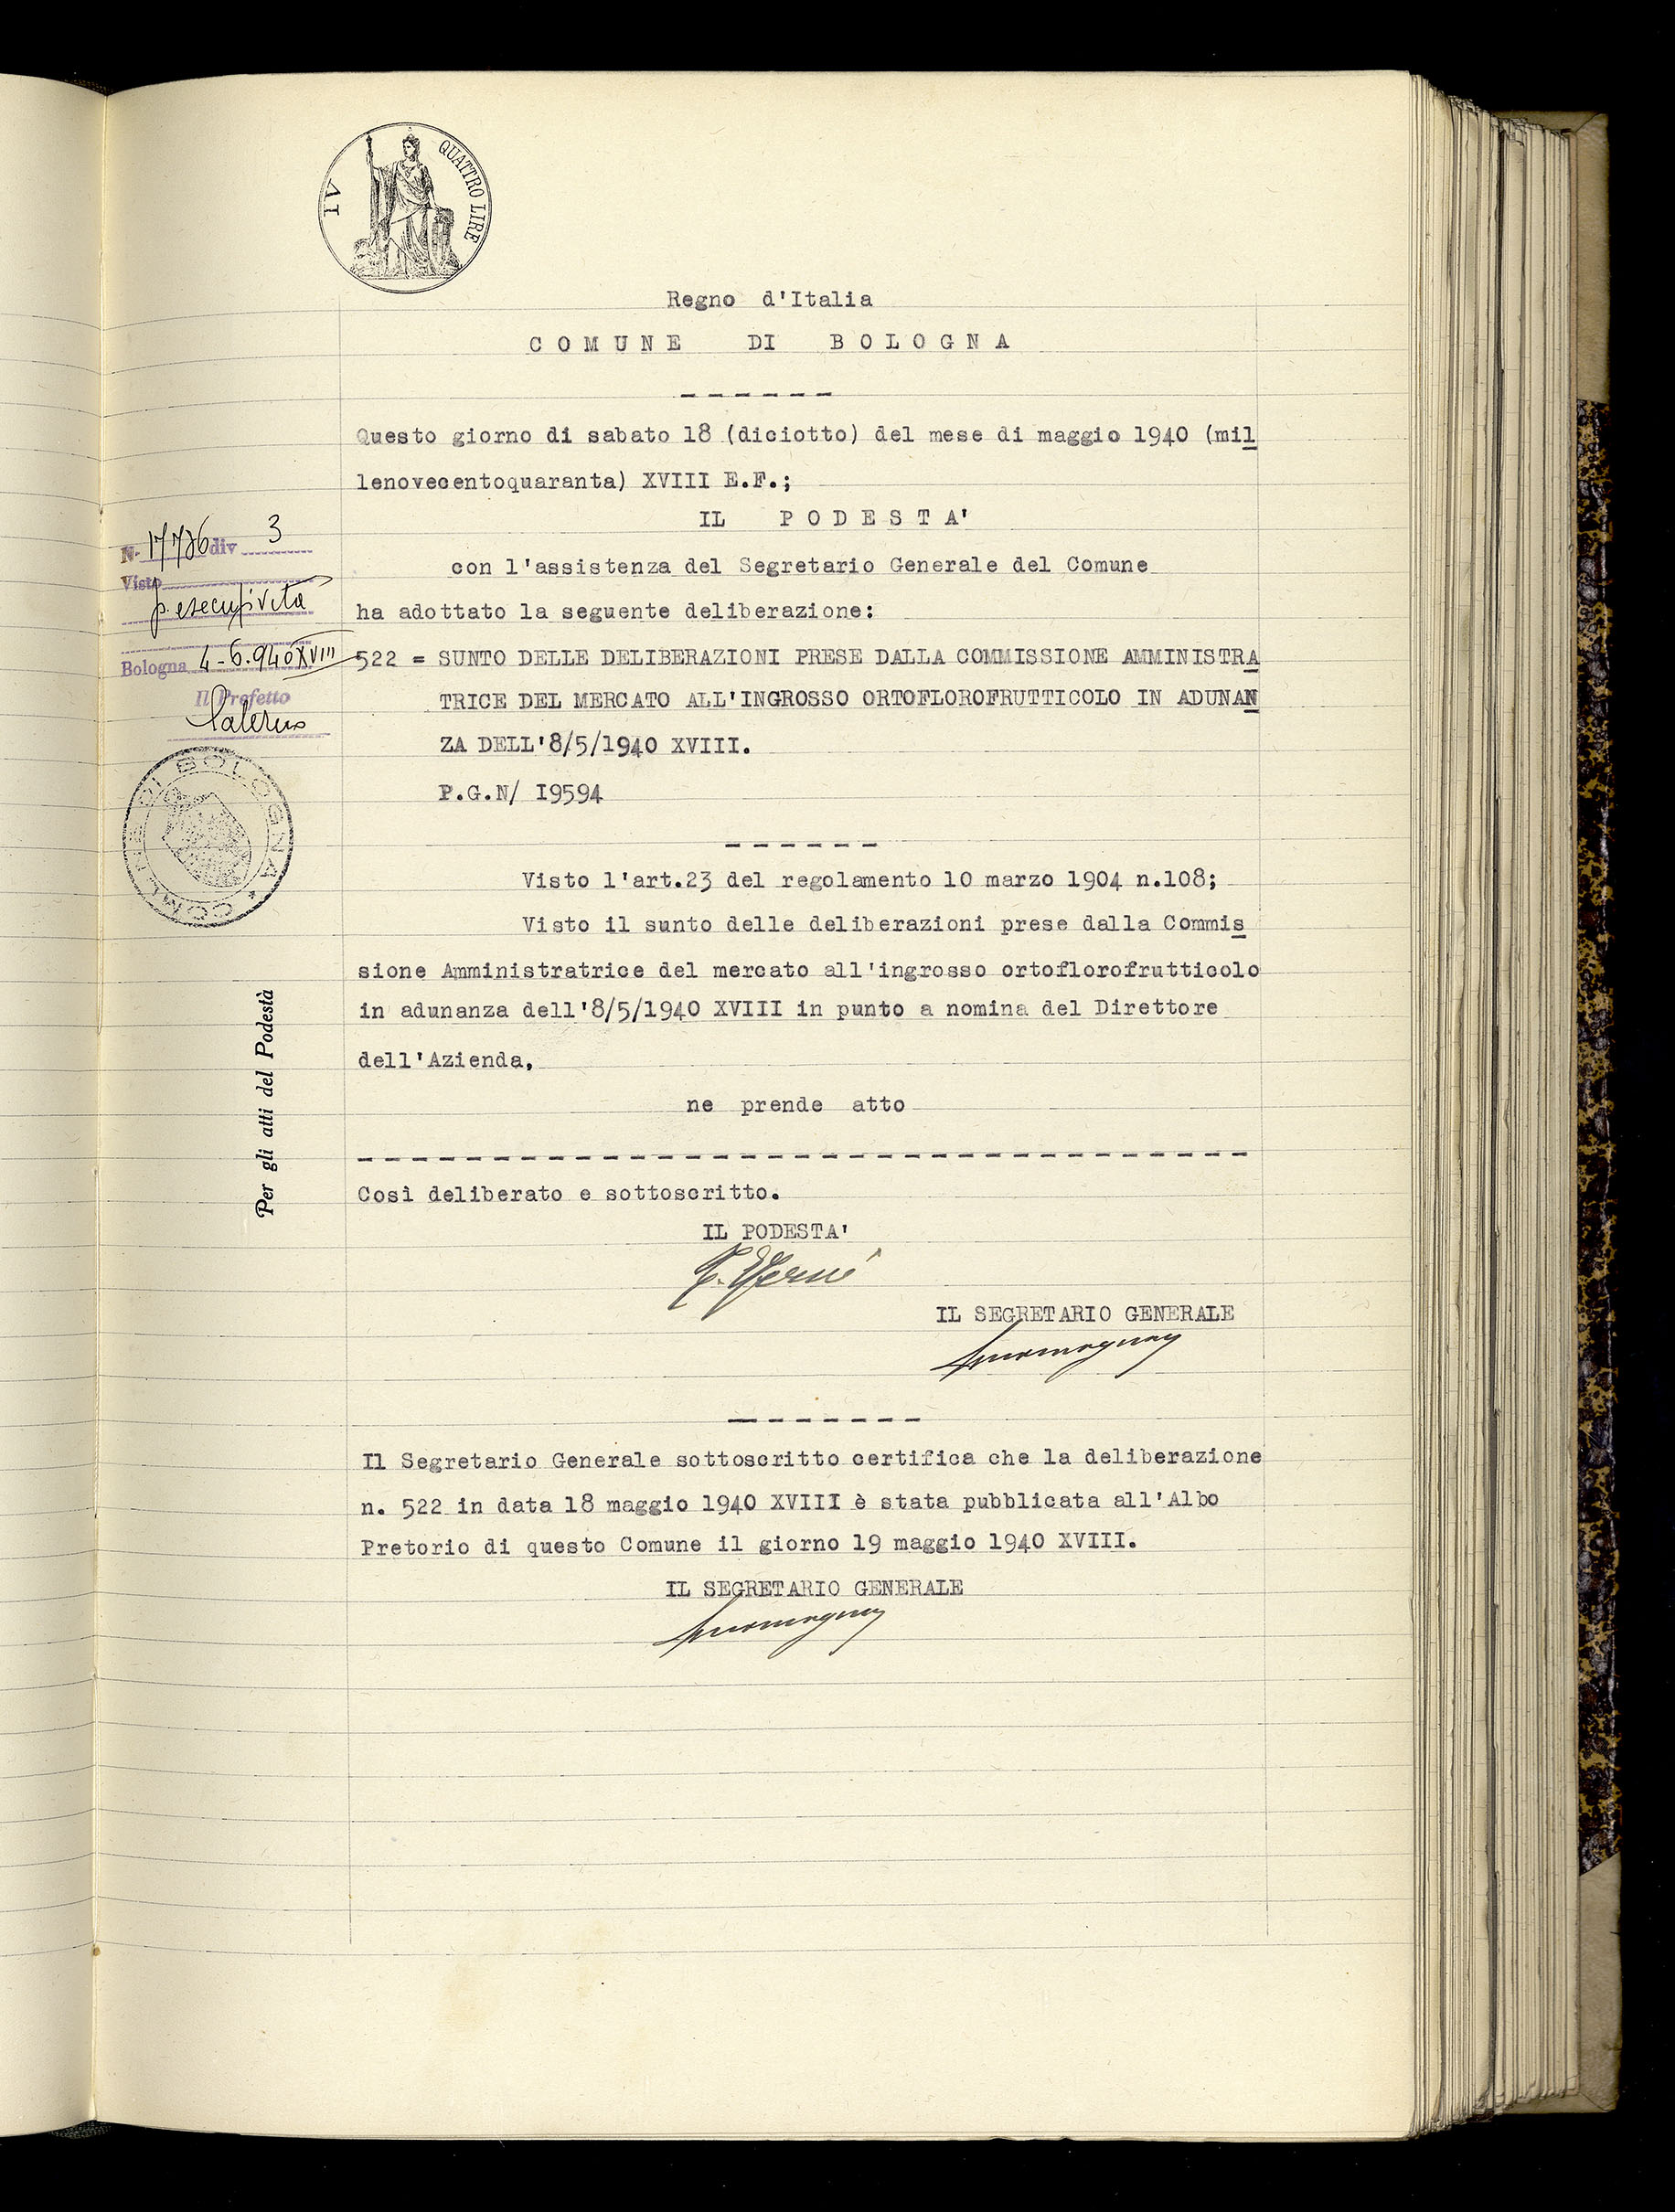 IV QUATTRO LIRE
Regno d'Italia
COMUNE DI BOLOGNA
------
Questo giorno di sabato 18 (diciotto) del mese di maggio 1940 (mil
lenovecentoquaranta) XVIII E.F.;
IL PODESTA'
con l'assistenza del Segretario Generale del Comune
ha adottato la seguente deliberazione:
N. 17726 div 3
Visto
p. esecutività
Bologna 4-6.940 XVIII
Il Prefetto
522 = SUNTO DELLE DELIBERAZIONI PRESE DALLA COMMISSIONE AMMINISTRA
TRICE DEL MERCATO ALL'INGROSSO ORTOFLOROFRUTTICOLO IN ADUNAN
ZA DELL'8/5/1940 XVIII.
P.G.N/ I9594
COMUNE DI BOLOGNA
------
Visto l'art.23 del regolamento 10 marzo 1904 n.108;
Visto il sunto delle deliberazioni prese dalla Commis
sione Amministratrice del mercato all'ingrosso ortoflorofrutticolo
in adunanza dell'8/5/1940 XVIII in punto a nomina del Direttore
dell'Azienda,
ne prende atto
Per gli atti del Podestà
---------------------------------
Così deliberato e sottoscritto.
IL PODESTA'
IL SEGRETARIO GENERALE
-------
Il Segretario Generale sottoscritto certifica che la deliberazione
n. 522 in data 18 maggio 1940 XVIII è stata pubblicata all'Albo
Pretorio di questo Comune il giorno 19 maggio 1940 XVIII.
IL SEGRETARIO GENERALE